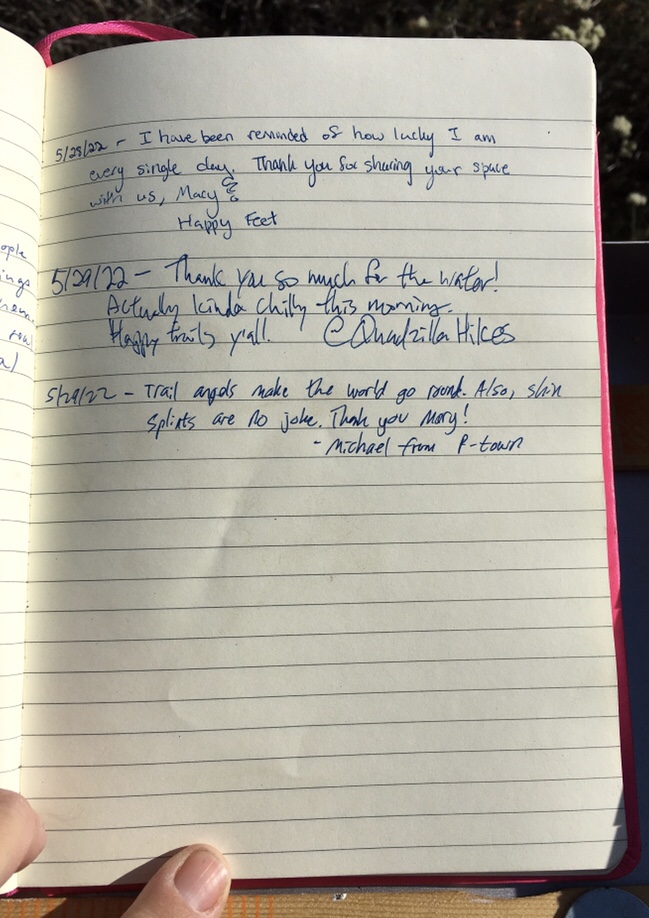 ople
ings
hem.
real
al
5/28/22 - I have been reminded of how lucky I am
every single day. Thank you for sharing your space
with us, Macy &
Happy Feet
5/29/22 - Thank you so much for the water!
Actually kinda chilly this morning.
Happy trails y'all. @QuadzillaHikes
5/29/22 - Trail angels make the world go round. Also, shin
splints are no joke. Thank you Mary!
- Michael from P-town